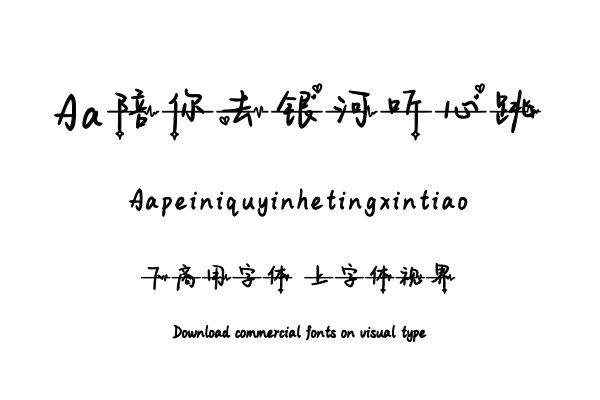 Aa陪你去银河听心跳
Aapeiniquyinhetingxintiao
下商用字体 上字体视界
Download commercial fonts on visual type